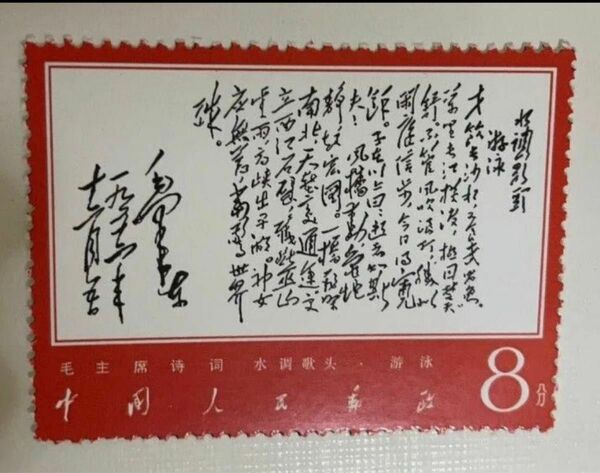 水调歌头
游泳
才饮长沙水,又食武昌鱼。
万里长江横渡,极目楚天
舒。不管风吹浪打,胜似
闲庭信步,今日得宽
馀。子在川上曰:逝者如斯
夫!风樯动,龟蛇
静,起宏图。一桥飞架
南北,天堑变通途。更
立西江石壁,截断巫山
云雨,高峡出平湖。神女
应无恙,当惊世界
殊。
毛泽东
一九五六年
十二月五日
毛主席诗词 水调歌头·游泳
中国人民邮政 8分